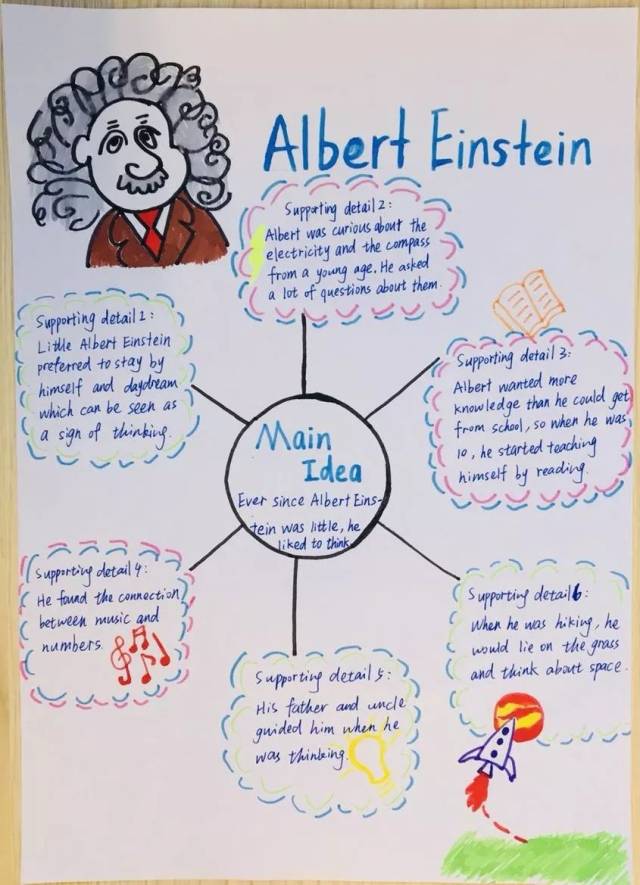 Albert Einstein
Supporting detail 2:
Albert was curious about the
electricity and the compass
from a young age. He asked
a lot of questions about them.
Supporting detail 1:
Little Albert Einstein
preferred to stay by
himself and daydream
which can be seen as
a sign of thinking.
Supporting detail 3:
Albert wanted more
knowledge than he could get
from school, so when he was
10, he started teaching
himself by reading.
Main
Idea
Ever since Albert Eins-
tein was little, he
liked to think
Supporting detail 4:
He found the connection
between music and
numbers.
Supporting detail 5:
His father and uncle
guided him when he
was thinking.
Supporting detail 6:
When he was hiking, he
would lie on the grass
and think about space.